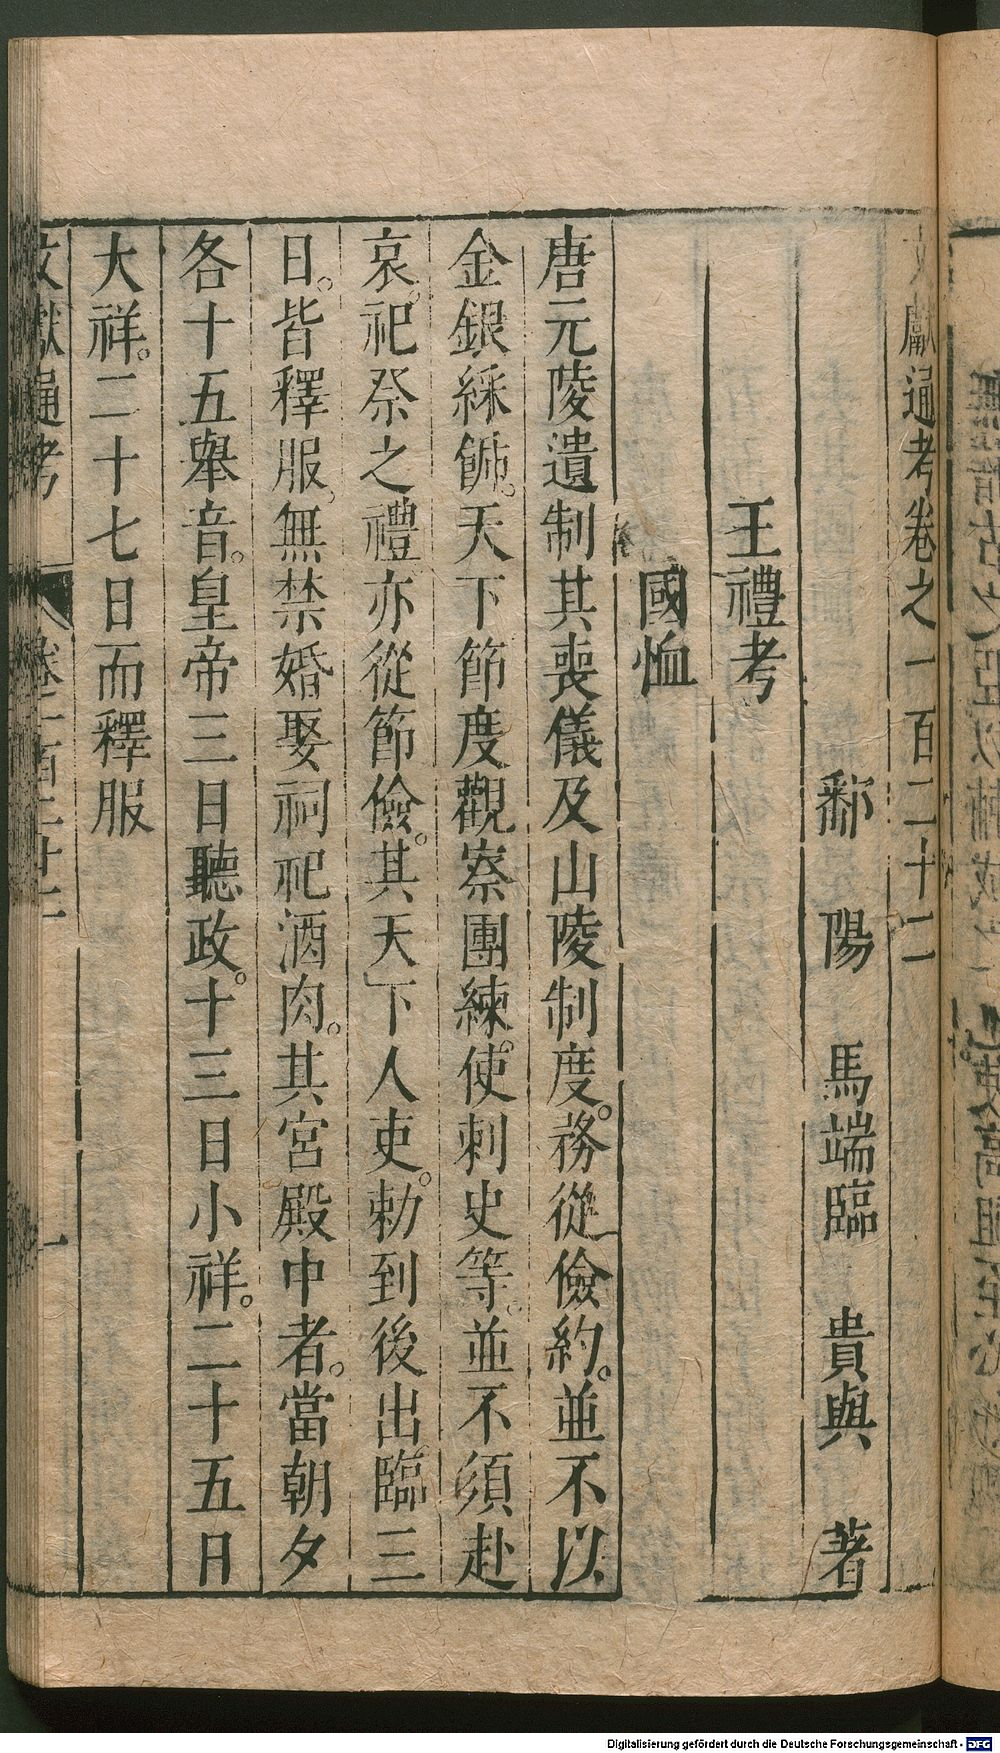 文獻通考卷之一百二十二
鄱陽馬端臨貴與著
王禮考
國恤
唐元陵遺制其喪儀及山陵制度。務從儉約。並不以
金銀綵飾。天下節度觀察團練。使刺史等。並不須赴
哀。祀祭之禮亦從節儉。其天下人吏。勅到後出臨三
日。皆釋服。無禁婚娶祠祀酒肉。其宮殿中者。當朝夕
各十五舉音。皇帝三日聽政。十三日小祥。二十五日
大祥。二十七日而釋服
文獻通考
卷一百二十二
一
Digitalisierung gefördert durch die Deutsche Forschungsgemeinschaft - DFG